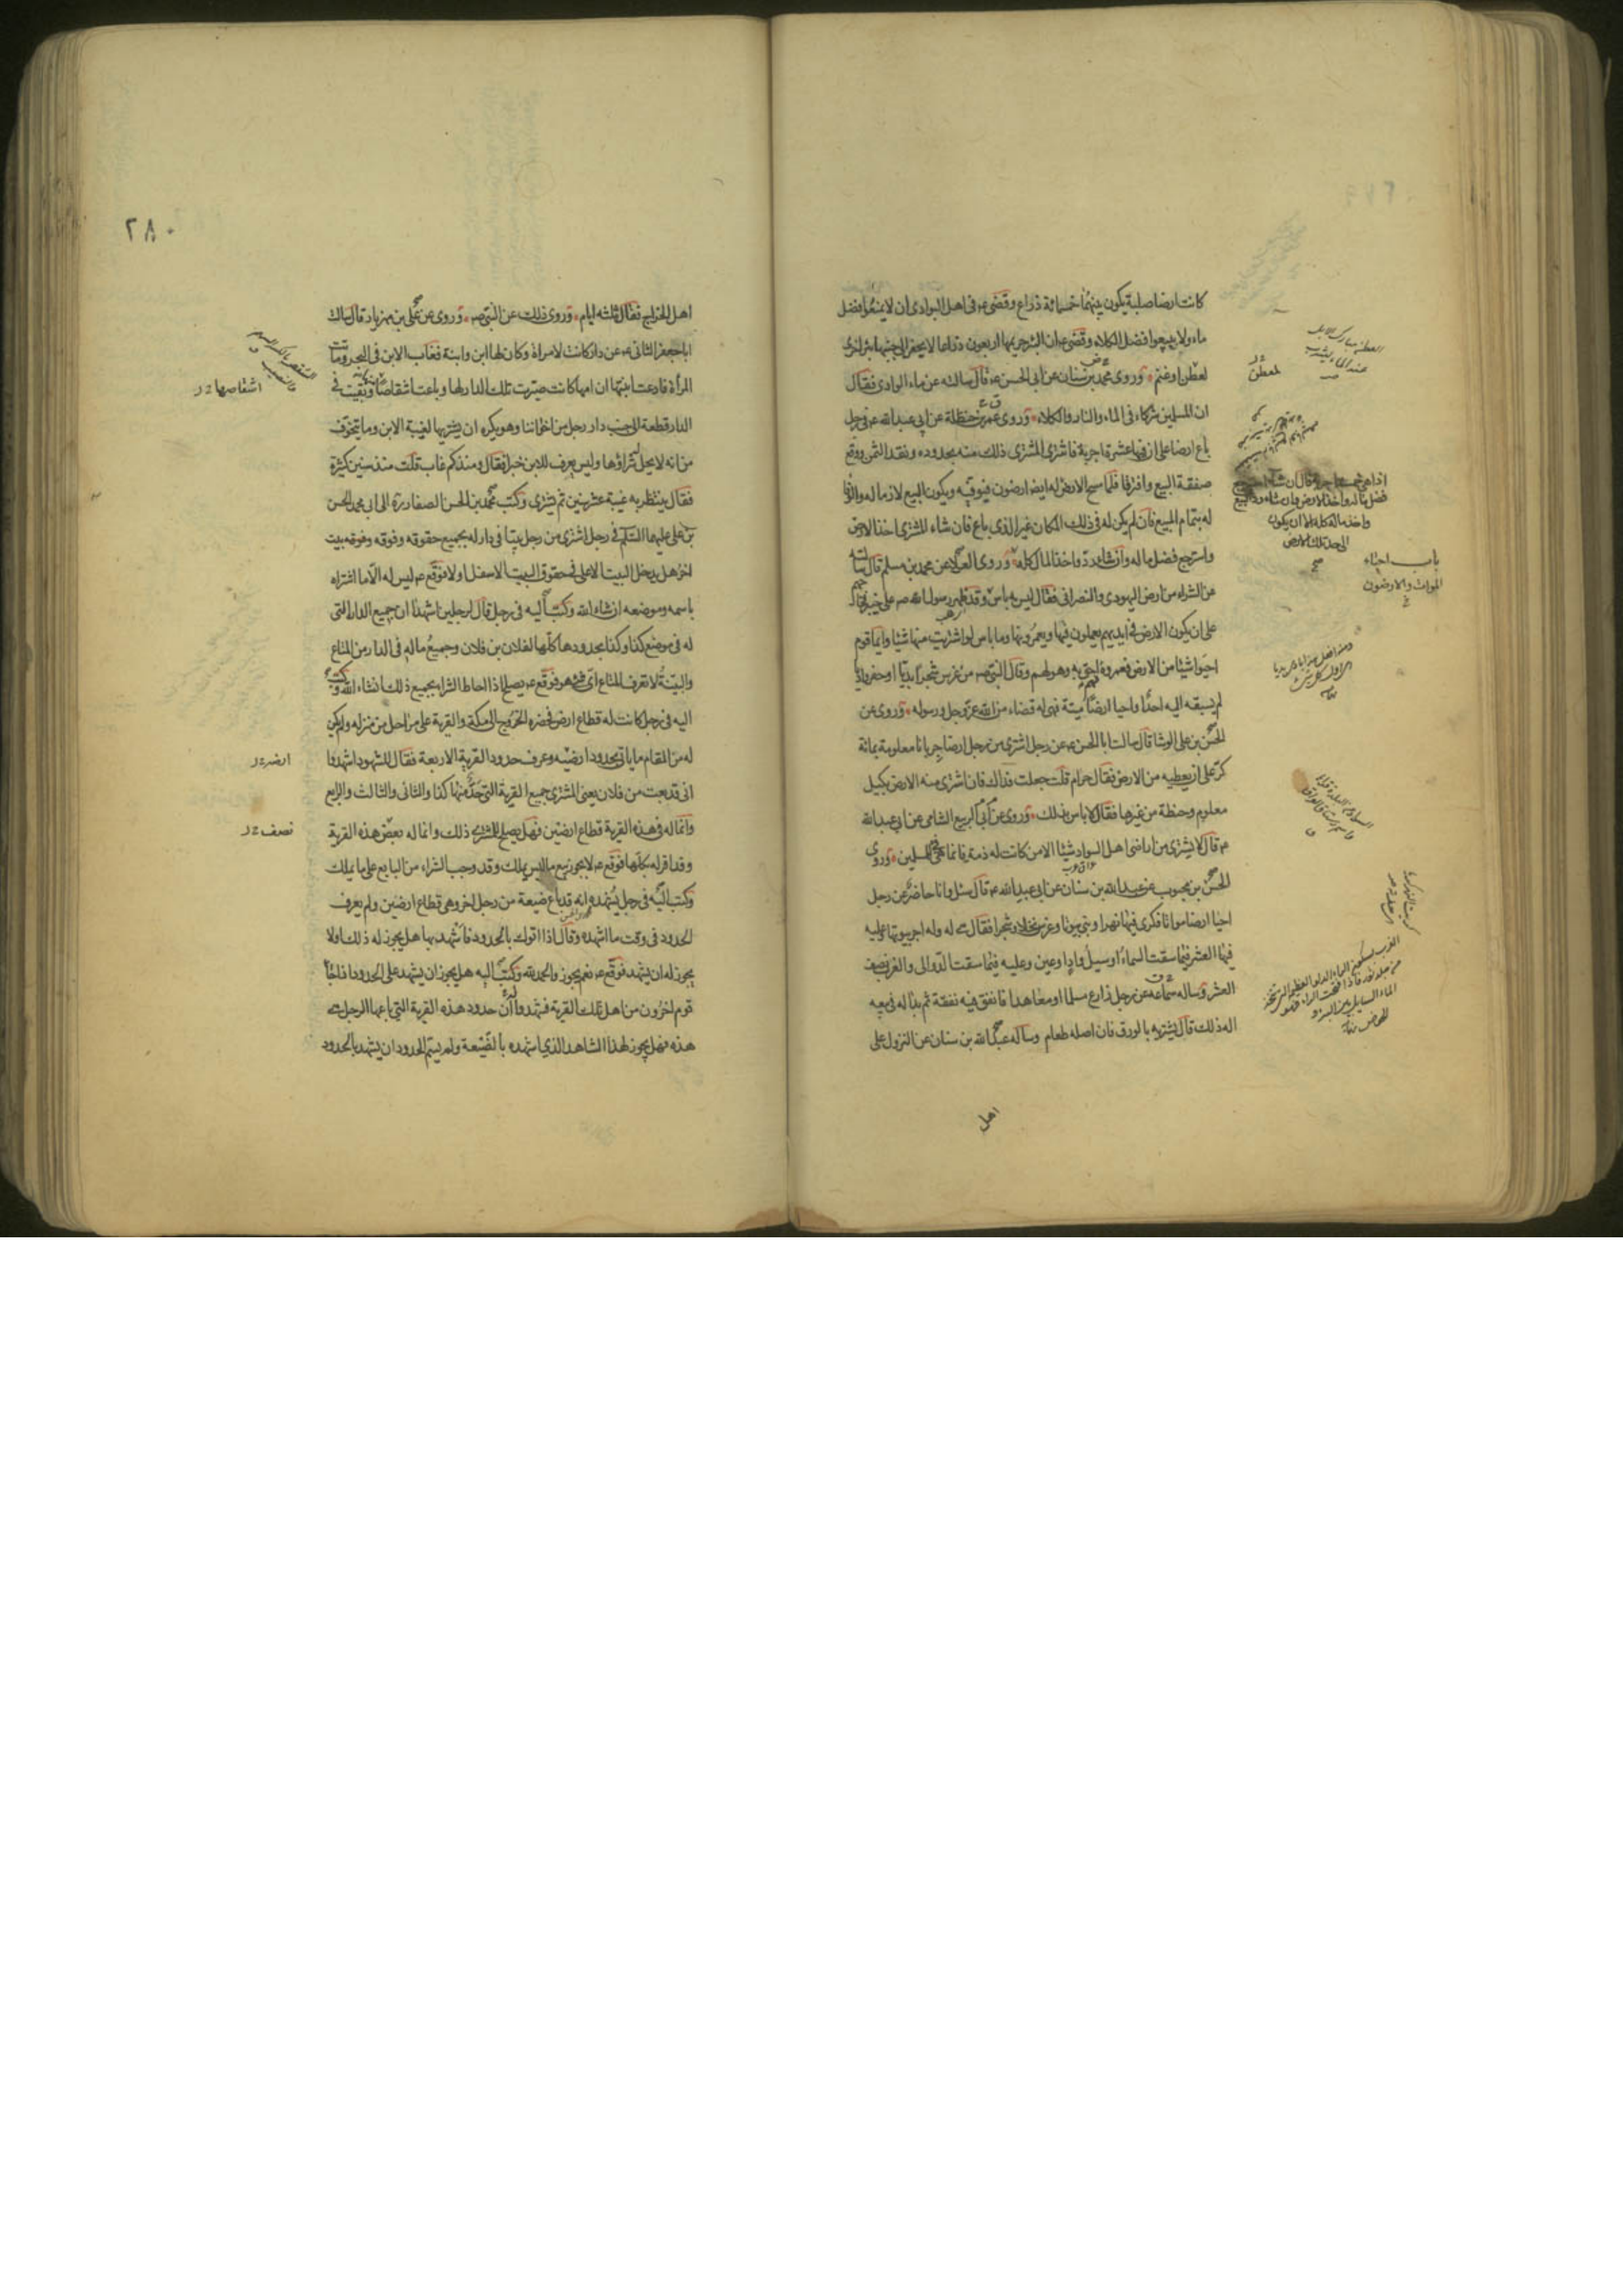 كانت ارضا صلبة يكون بينهما خمسمائة ذراع وقضى ع في اهل البوادى ان لا يمنعوا فضل
ماء ولا يبيعوا فضل الكلاء وقضى ع ان البئر حريمها اربعون ذراعا لا يحفر الى جنبها بئر اخرى
لعطن او غنم وروى محمد بن سنان عن ابى الحسن ع قال سالته عن ماء الوادى فقال
ان المسلمين شركاء فى الماء والنار والكلاء وروى عمر بن حنظلة عن ابى عبد الله ع فى رجل
باع ارضا على ان فيها عشرة اجربة فاشترى المشترى ذلك منه بحدوده ونقد الثمن ووقع
صفقة البيع وافترقا فلما مسح الارض له ارضون فيوفيه ويكون البيع لازما له والوفا
له بتمام المبيع فان لم يكن له فى ذلك المكان غير الذى باع فان شاء المشترى اخذ الارض
واسترجع فضل ماله وان شاء رد واخذ المال كله وروى العلا عن محمد بن مسلم قال سالته
عن الشراء من ارض اليهودى والنصرانى فقال ليس به باس وقد ظهر رسول الله ص على خيبر
على ان يكون الارض فى ايديهم يعملون فيها ويعمرونها وما باس لو اشتريت منها شيئا وايما قوم
احيوا شيئا من الارض فعمروه فهم احق به وهو لهم وقال النبى ص من غرس شجرا بديا او حفر واديا
لم يسبقه اليه احد او احيا ارضا ميتة فهى له قضاء من الله عز وجل ورسوله وروى عن
الحسن بن على الوشا قال سالت ابا الحسن ع عن رجل اشترى من رجل ارضا جربانا معلومة بمائة
كر على ان يعطيه من الارض فقال حرام قلت جعلت فداك فان اشترى منه الارض بكيل
معلوم وحنطة من غيرها فقال لا باس بذلك وروى عن ابى الربيع الشامى عن ابى عبد الله
ع قال لا يشترى من اراضى اهل السواد شيئا الا من كانت له ذمة فانما هى فئ للمسلمين وروى
الحسن بن محبوب عن عبد الله بن سنان عن ابى عبد الله ع قال سئل وانا حاضر عن رجل
احيا ارضا مواتا فكرى فيها نهرا وبنى بيوتا وغرس نخلا وشجرا فقال هى له وله اجر بيوتها وعليه
فيها العشر فيما سقت السماء او سيل واد او عين وعليه فيما سقت الدوالى والغرب نصف
العشر وساله سماعة عن رجل زارع مسلما او معاهدا فانفق فيه نفقة ثم بدا له فى بيعه
اله ذلك قال يشتريه بالورق فان اصله طعام وساله عبد الله بن سنان عن النزول على
اهل
لمعطن
اخذ الارض وان شاء رد البيع
واخذ ماله كله الا ان يكون
الى حد تلك الارض
باب احياء
الموات والارضون
٢٨٠
اهل الخراج فقال ثلثه ايام وروى ذلك عن النبى ص وروى عن على بن مهزيار قال سالت
ابا جعفر الثانى ع عن دار كانت لامراة وكان لها ابن وابنة فغاب الابن فى البحر وماتت
المراة فادعت ابنتها ان امها كانت صيرت تلك الدار لها وباعت اشقاصا وبقيت فى
الدار قطعة الى جنب دار رجل من اخواننا وهو يكره ان يشتريها لغيبة الابن وما يتخوف
من انه لا يحل شراؤها وليس يعرف للابن خبر فقال ومنذ كم غاب قلت منذ سنين كثيرة
فقال ينتظر به غيبة عشر سنين ثم يشترى وكتب محمد بن الحسن الصفار ره الى ابى محمد الحسن
بن على عليهما السلام فى رجل اشترى من رجل بيتا فى دار له بجميع حقوقه وفوقه بيت
اخر هل يدخل البيت الاعلى فى حقوق البيت الاسفل او لا فوقع ع ليس له الا ما اشتراه
باسمه وموضعه ان شاء الله وكتب اليه فى رجل قال لرجلين اشهدا ان جميع الدار التى
له فى موضع كذا وكذا بحدودها كلها لفلان بن فلان وجميع ماله فى الدار من المتاع
والبينة لا تعرف المتاع اى شئ هو فوقع ع يصلح اذا احاط الشراء بجميع ذلك انشاء الله وكتب
اليه فى رجل كانت له قطاع ارض فحضره الخروج الى مكة والقرية على مراحل من منزله ولم يكن
له من المقام ما ياتى بحدود ارضه وعرف حدود القرية الاربعة فقال للشهود اشهدوا
انى قد بعت من فلان يعنى المشترى جميع القرية التى حد منها كذا والثانى والثالث والرابع
وانما له فى هذه القرية قطاع ارضين فهل يصلح للمشترى ذلك وانما له بعض هذه القرية
وقد اقر له بكلها فوقع ع لا يجوز بيع ما ليس يملك وقد وجب الشراء من البايع على ما يملك
وكتب اليه فى رجل يشهده انه قد باع ضيعة من رجل اخر وهى قطاع ارضين ولم يعرف
الحدود فى وقت ما اشهده وقال اذا اتوك بالحدود فاشهد بها هل يجوز له ذلك او لا
يجوز له ان يشهد فوقع ع نعم يجوز والحمد لله وكتب اليه هل يجوز ان يشهد على الحدود اذا جاء
قوم اخرون من اهل تلك القرية فشهدوا له ان حدود هذه القرية التى باعها الرجل هى
هذه فهل يجوز لهذا الشاهد الذى اشهده بالضيعة ولم يسم الحدود ان يشهد بالحدود
اشقاصها
ارضه
نصف